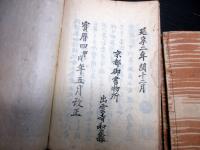 延享二年閏十二月
京都御書物所
出雲寺和泉
寳暦四甲戌年五月改正